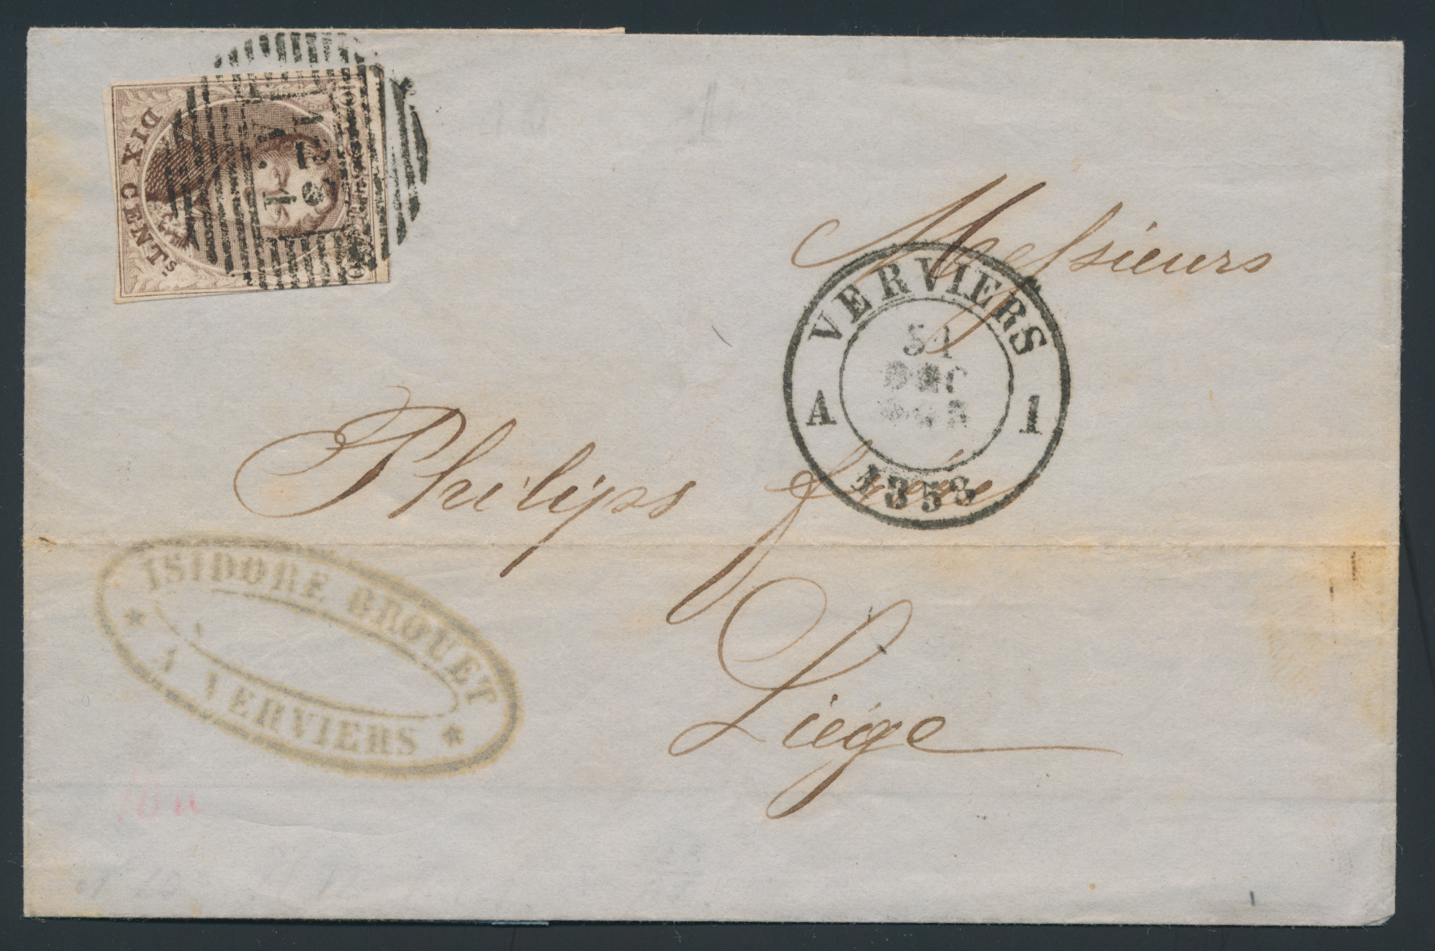 DIX CENTS
123
VERVIERS
A 1
DEC
1858
Messieurs
Philips frère
Liége
ISIDORE BROUET
* A VERVIERS *